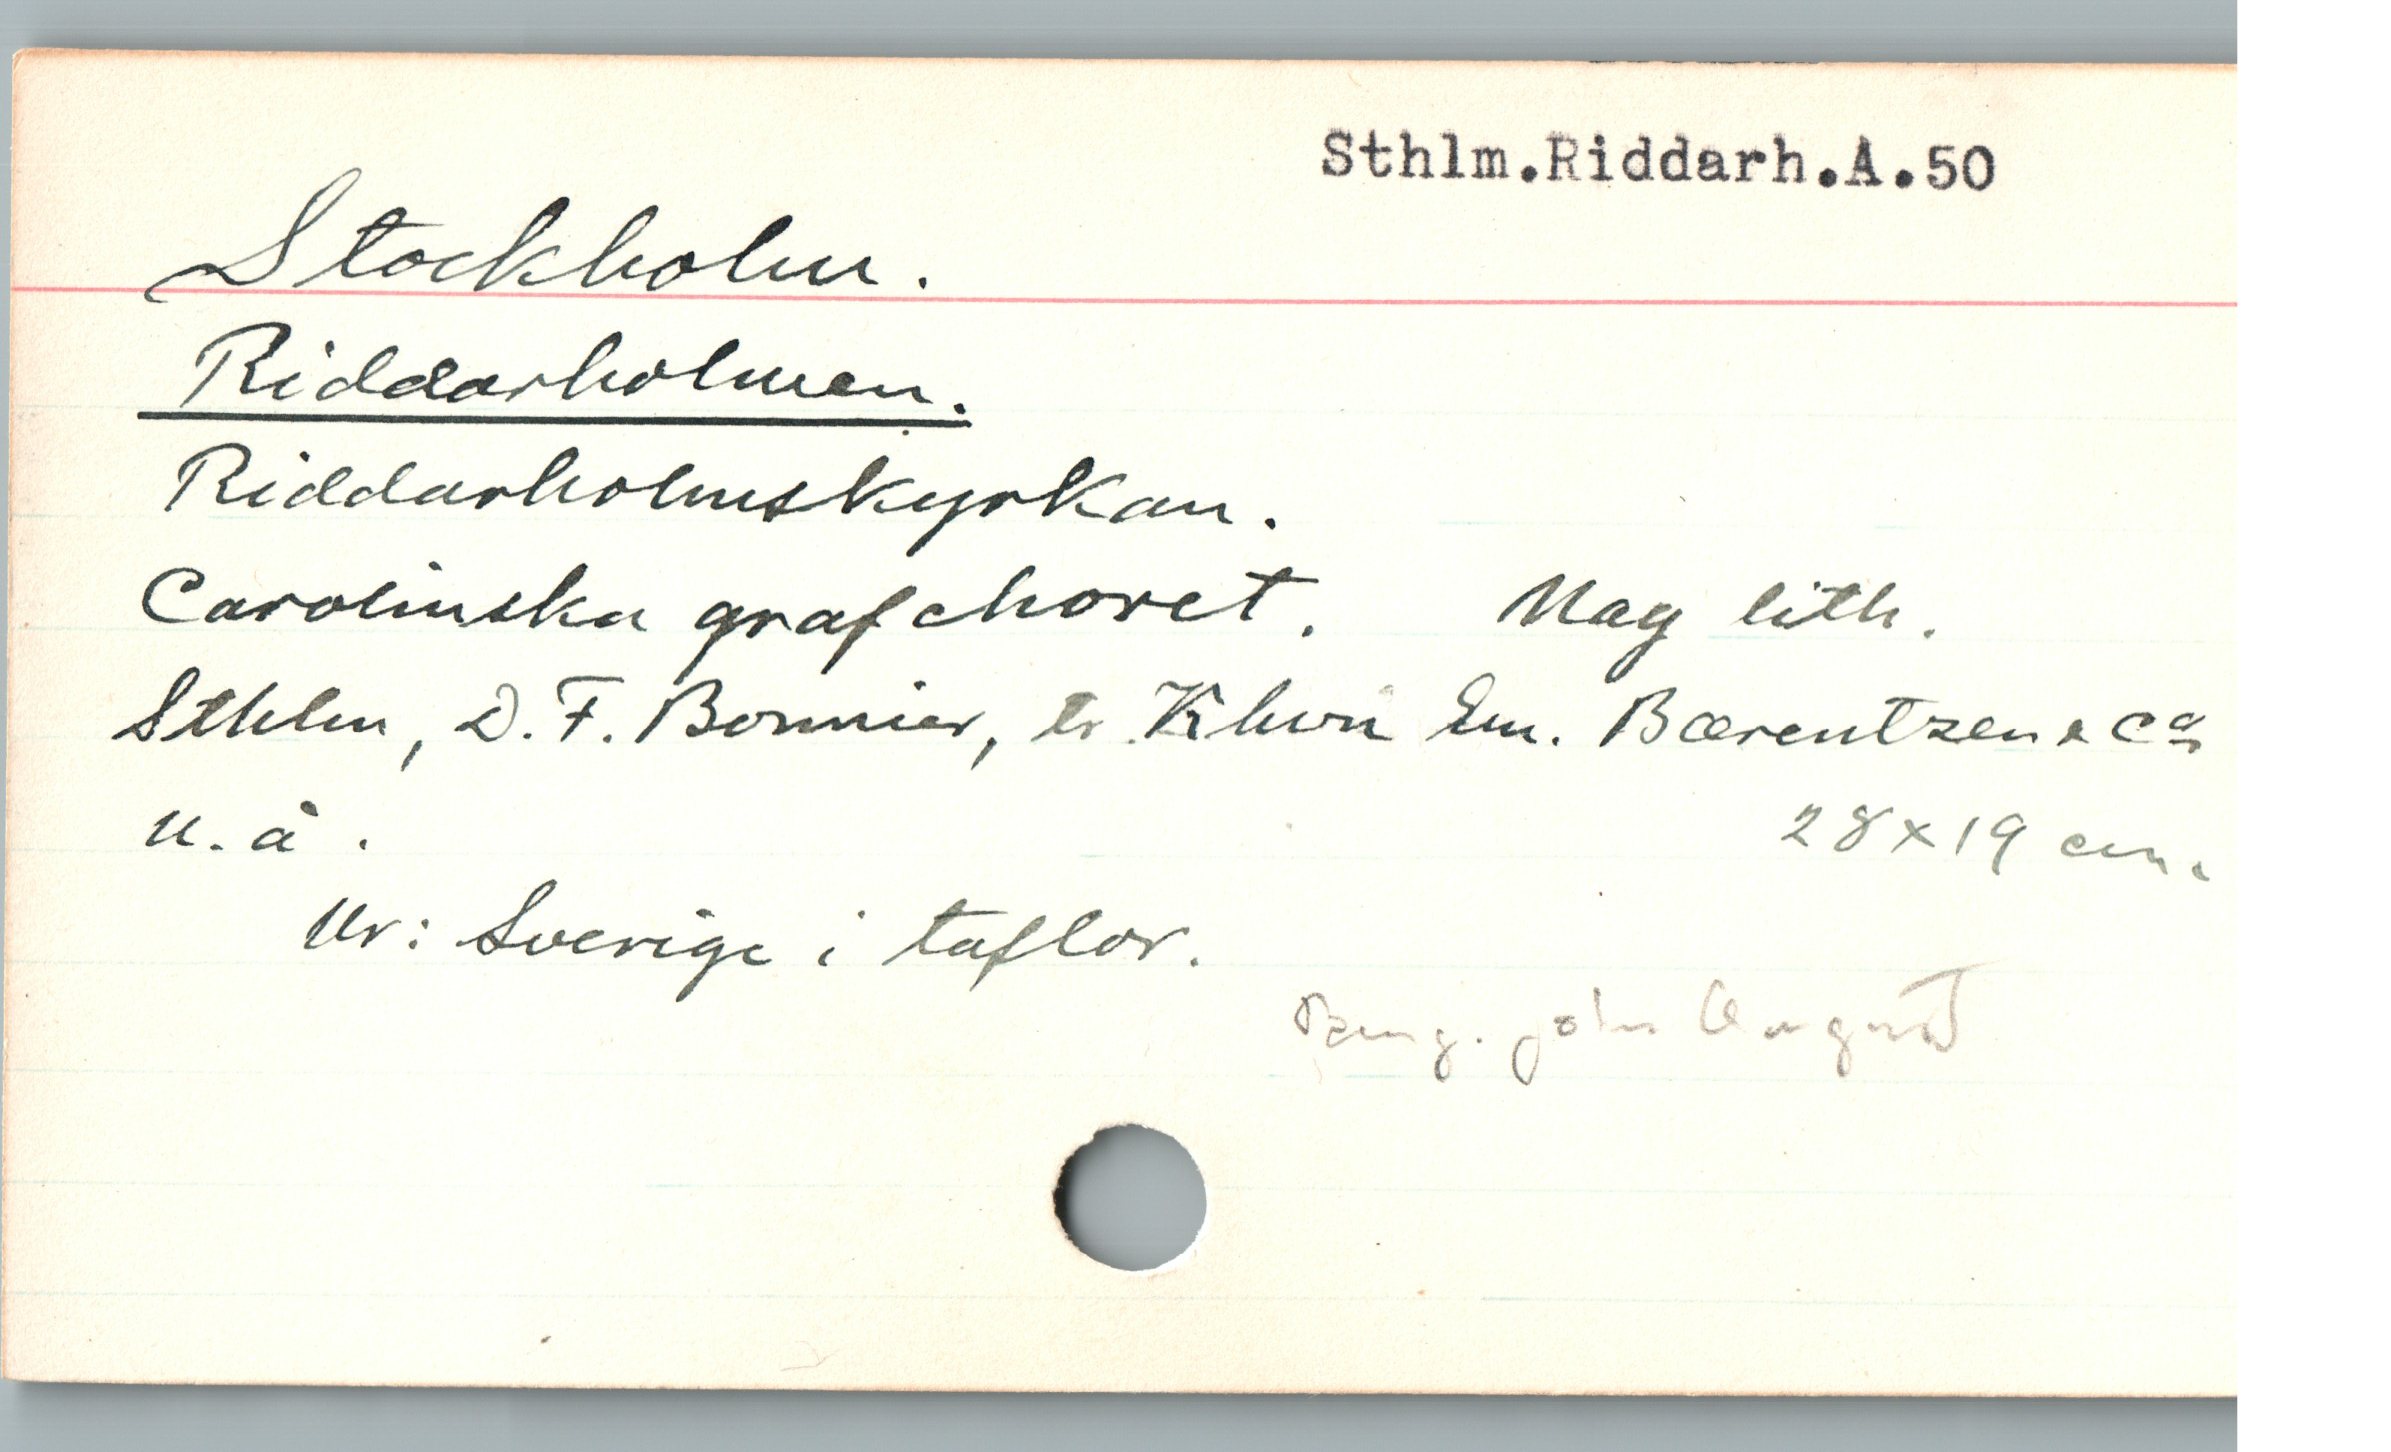 Sthlm.Riddarh.A.50
Stockholm.
Riddarholmen.
Riddarholmskyrkan.
Carolinska grafchoret. Nay lith.
Sthlm, D. F. Bonnier, tr. Khvn Em. Bærentzen & Co
u. å.
28x19 cm.
Ur: Sverige i taflor.
Berg. John August